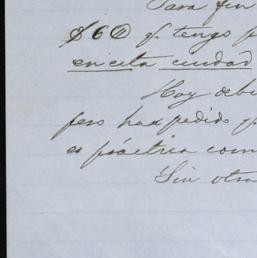 Para fin
$60 q. tengo p
en esta ciudad
Hoy debi
pero han pedido q
es práctica com
Sin otra